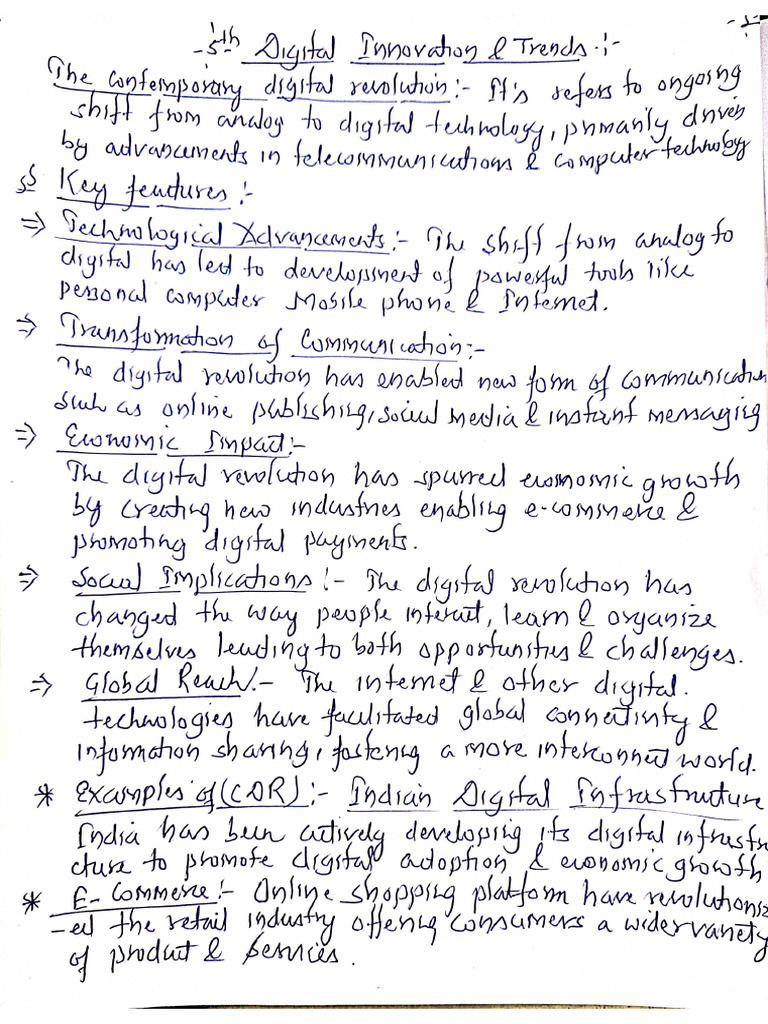 -1-
-5th Digital Innovation & Trends :-
The contemporary digital revolution:- It's refers to ongoing
shift from analog to digital technology, primarily driven
by advancements in telecommunications & computer technology
Key features :-
⇒ Technological Advancements:- The shift from analog to
digital has led to development of powerful tools like
personal computer Mobile phone & Internet.
⇒ Transformation of Communication:-
The digital revolution has enabled new form of communication
such as online publishing, social media & instant messaging
⇒ Economic Impact:-
The digital revolution has spurred economic growth
by creating new industries enabling e-commerce &
promoting digital payments.
⇒ Social Implications :- The digital revolution has
changed the way people interact, learn & organize
themselves leading to both opportunities & challenges.
⇒ Global Reach:- The internet & other digital.
technologies have facilitated global connectivity &
information sharing, fostering a more interconnect world.
* Examples of (CDR):- Indian Digital Infrastructure
India has been actively developing its digital infrastru
cture to promote digital adoption & economic growth
* E-Commerce:- Online shopping platform have revolutioniz
-ed the retail industry offering consumers a wider variety
of product & services.